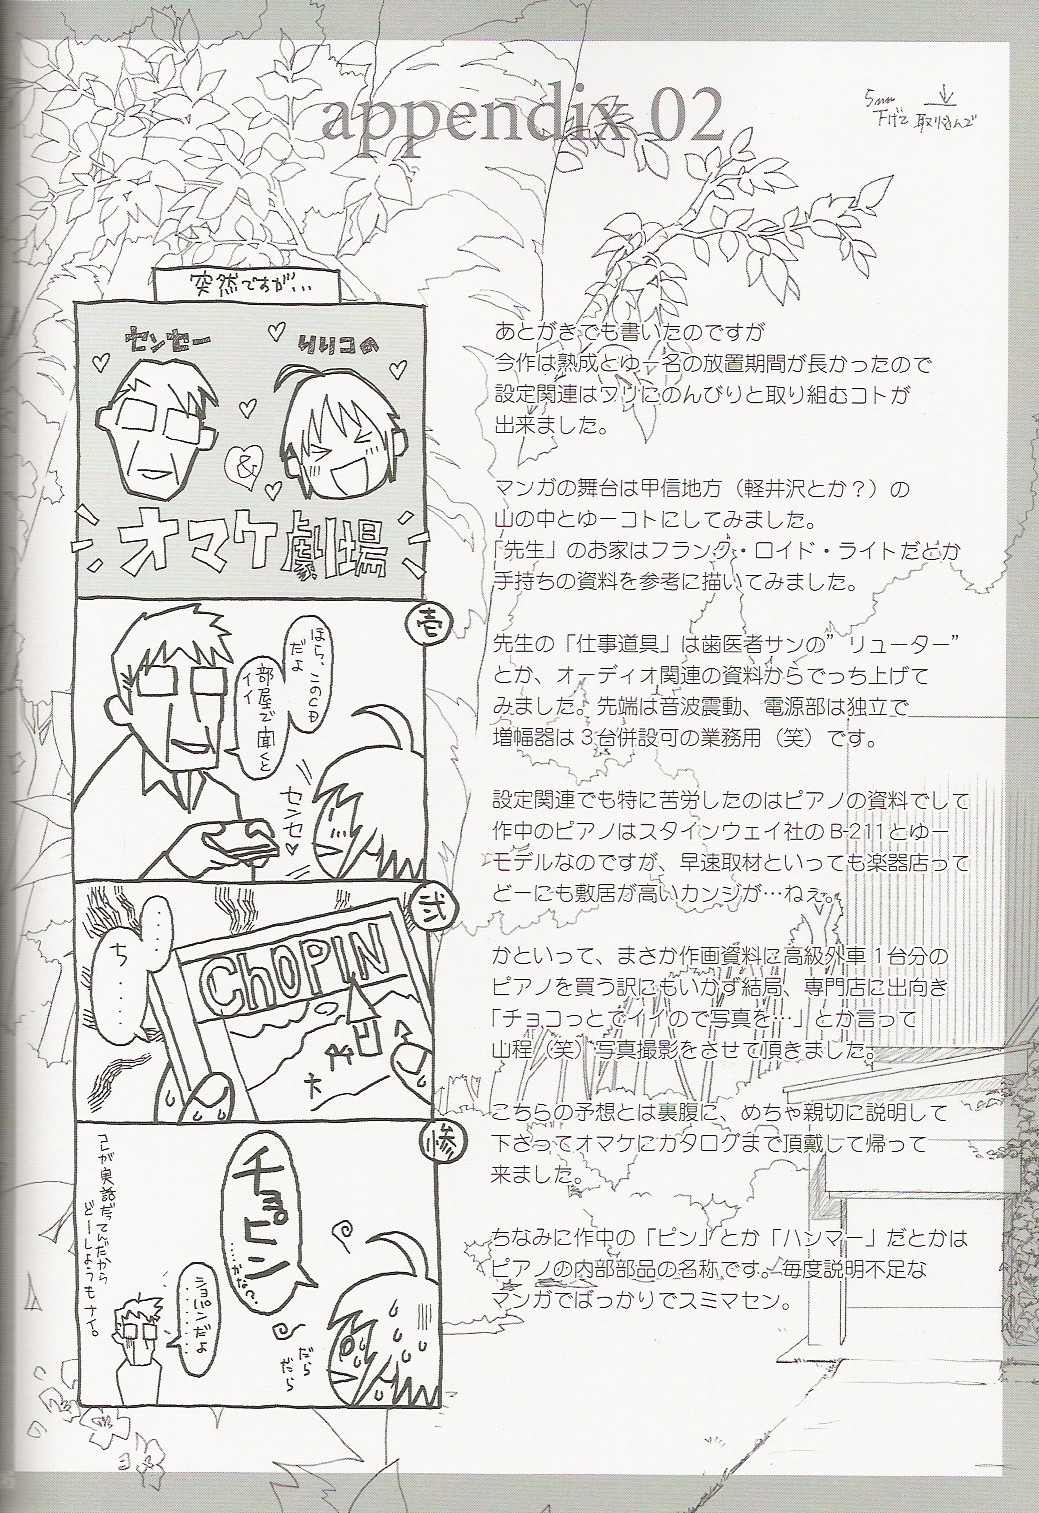 appendix 02
5mm
下げて 取り込んで
突然ですが…
センセー
リリコの
&
オマケ劇場
壱
ほら、このCD
だよ
部屋で聞くと
イイ
センセ♡
弐
……
ち……
CHOPIN
惨
チョピン
……かな〜。
ショパンだよ
………
だら
だら
コレが実話だってんだから
どーしようもナイ。
あとがきでも書いたのですが
今作は熟成とゆー名の放置期間が長かったので
設定関連はワリにのんびりと取り組むコトが
出来ました。
マンガの舞台は甲信地方（軽井沢とか？）の
山の中とゆーコトにしてみました。
「先生」のお家はフランク・ロイド・ライトだとか
手持ちの資料を参考に描いてみました。
先生の「仕事道具」は歯医者サンの”リューター”
とか、オーディオ関連の資料からでっち上げて
みました。先端は音波震動、電源部は独立で
増幅器は３台併設可の業務用（笑）です。
設定関連でも特に苦労したのはピアノの資料でして
作中のピアノはスタインウェイ社のB-211とゆー
モデルなのですが、早速取材といっても楽器店って
どーにも敷居が高いカンジが…ねぇ。
かといって、まさか作画資料に高級外車１台分の
ピアノを買う訳にもいかず結局、専門店に出向き
「チョコっとでイイので写真を…」とか言って
山程（笑）写真撮影をさせて頂きました。
こちらの予想とは裏腹に、めちゃ親切に説明して
下さってオマケにカタログまで頂戴して帰って
来ました。
ちなみに作中の「ピン」とか「ハンマー」だとかは
ピアノの内部部品の名称です。毎度説明不足な
マンガでばっかりでスミマセン。